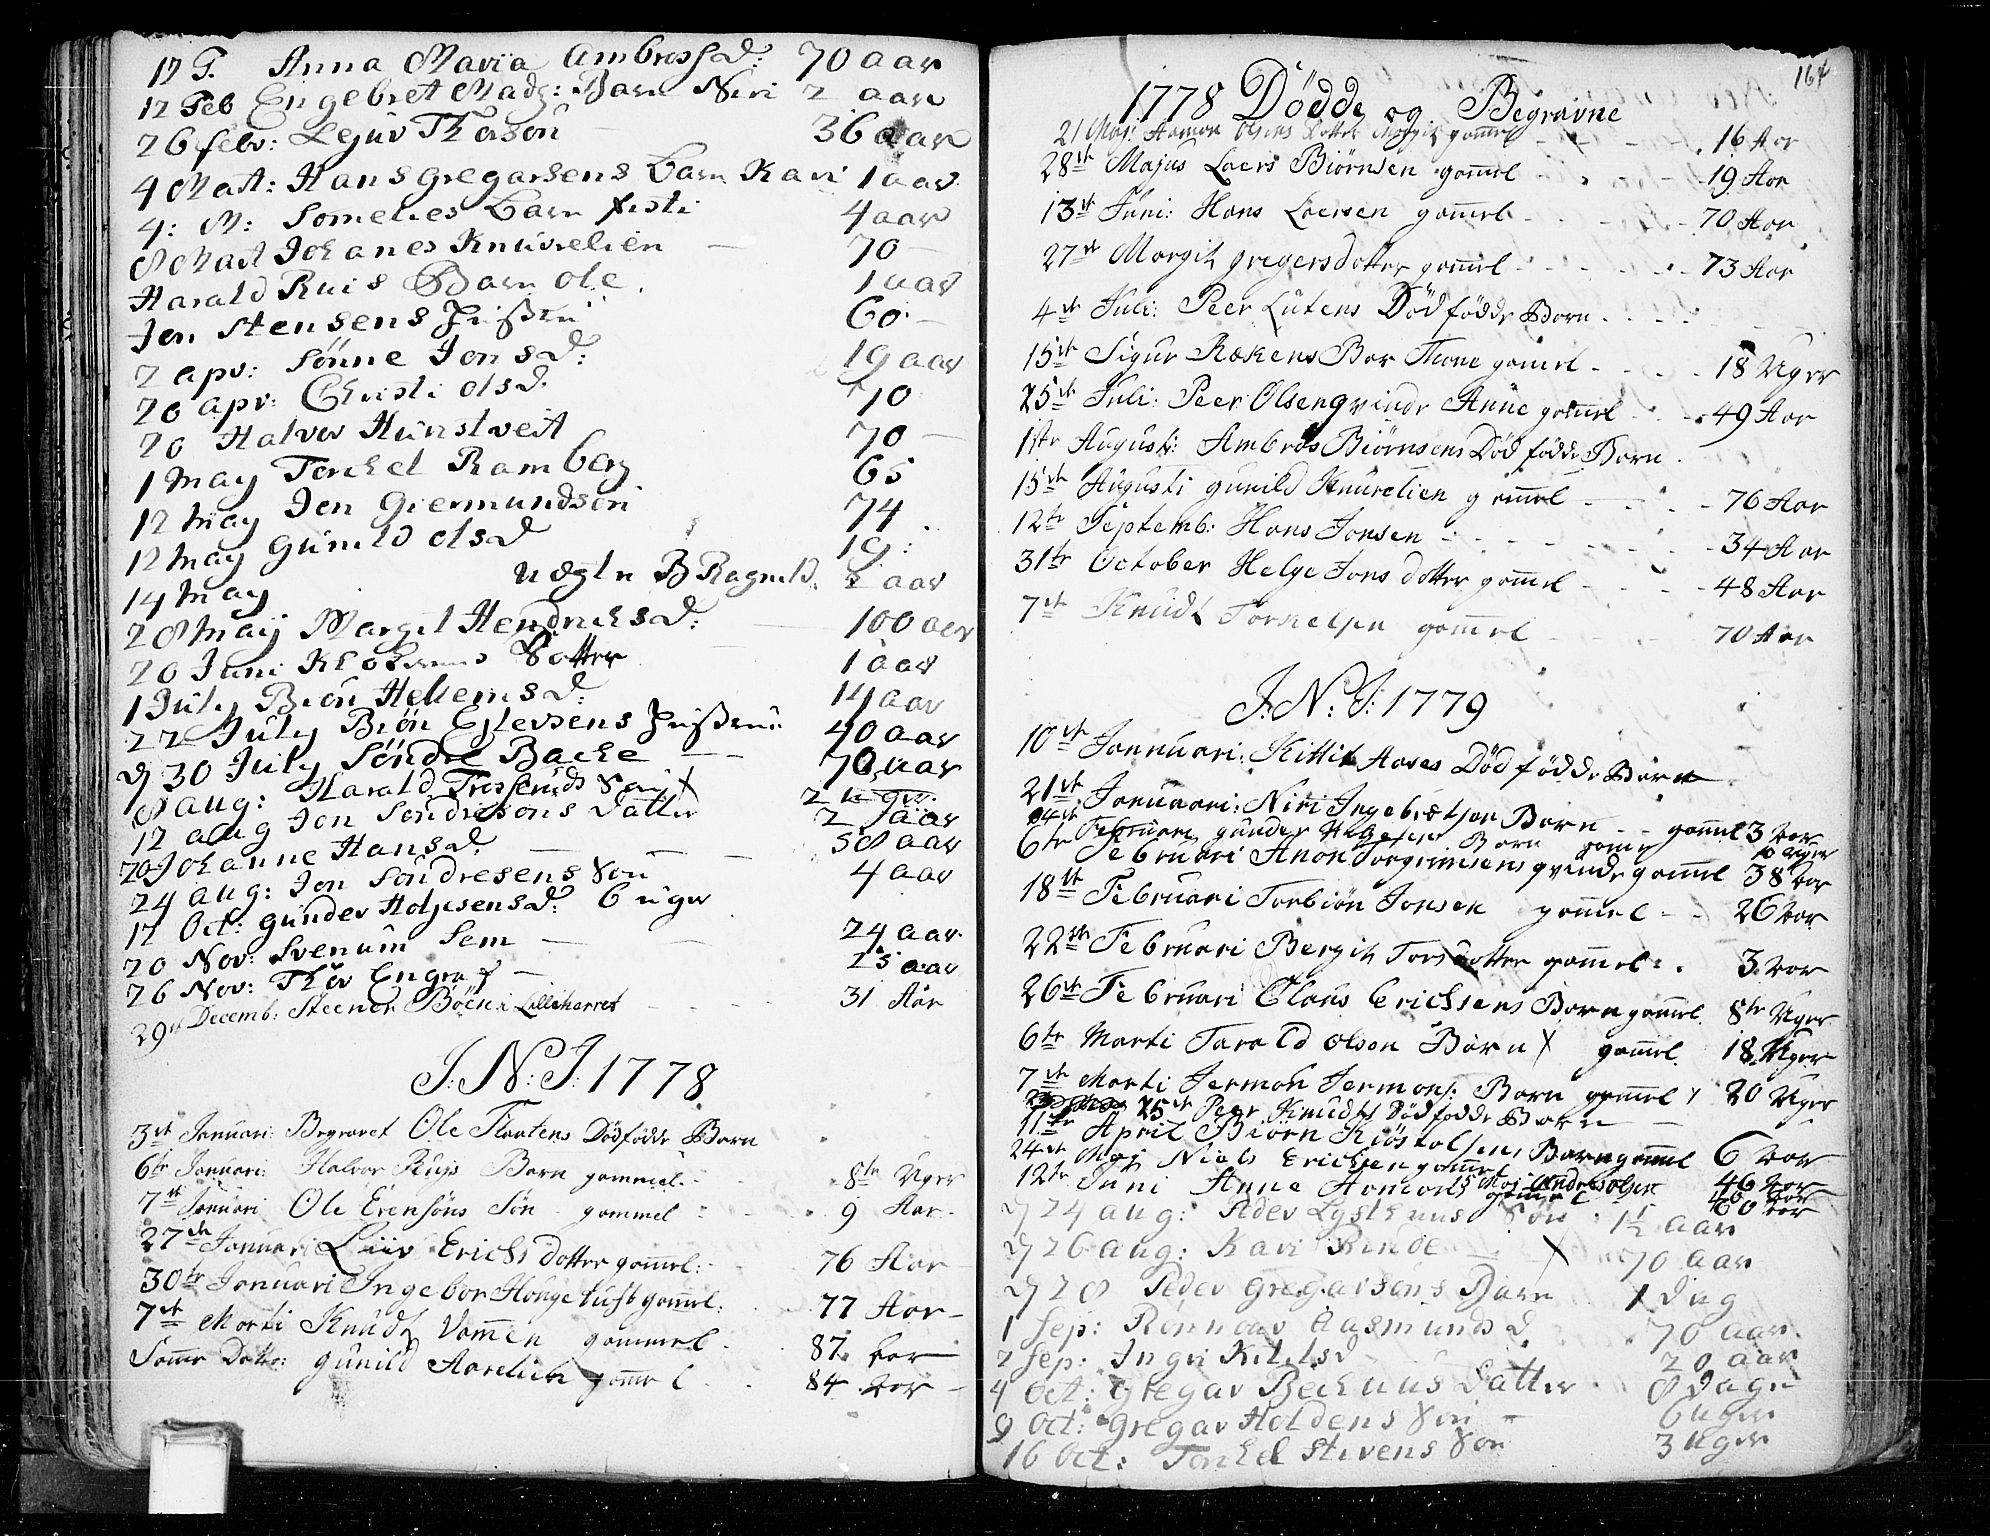 17 F. Anna Maria Ambrossd: 70 aar
12 Feb Engebret Mads: Barn Niri 2 aar
26 febr: Lejuv Thorson 36 aar
4 Mart: Hans gregarsens barn Kari 1 aar
4: M: Somelies barn 4 aar
8 Mart Johanes Knuvelien 70
Harald Ruis Barn Ole 1 aar
Jon Stensens 60
2 apr: Sönne Jonsd: 19 aar
20 apr: Christi olsd. 70
20 Halvor Hunstveit 70
1 may Torchel Ramberg 65
12 may Jon Giermundson 74
12 may Gunild olsd 19:
14 may B Ragnild. 2 aar
28 maij Margit Hendrichsd: 100 aar
20 Juni datter 1 aar
1 July Biön Hellemsd: 14 aar
22 July Biön Ejlevsens 40 aar
d 30 July Söndre Bache 70 aar
8 aug: Harald Son X 2 uger
12 aug Jon Söndresons datter 2 aar
20 Johanne Hansd: 58 aar
24 aug: Jon Söndresens Son 4 aar
17 Oct: gunder Holjesensd: 6 uger
20 Nov: Svenum Sem 24 aar
26 Nov: Thov Engraf 25 aar
29 Decemb: Steener Böen i Lilleherret 31 Aar
J: N: J: 1778
3de Januari: Begravet Ole Flaatens Dödfödde Barn
6te Januari: Halvor Ruijs Barn gammel 8te Uger
7de Januari Ole Erensöns Sön gammel 9 Aar
27de Januari Liiv Erichsdotter gamel: 76 Aar
30te Januari Ingebor Haugetuft gamel: 77 Aar
7de Marti Knudt Vammen gammel 87 Aar
Samme Datto: Gunild Aaselien gamel 84 Aar
164
1778 Dödde og Begravne
21 Maj: Aamon Olsens Dotter Margit gamel 16 Aar
28de Majus Laers Biörnsen gamel 19 Aar
13de Juni: Hans Laersen gamel 70 Aar
27de Margit gregersdotter gamel 73 Aar
4de Juli: Peer Lutens Död födde Barn
15de Sigur Rækens Bar Tone gamel 18 Uger
25de Juli: Peer Olsen qvinde Anne gamel 49 Aar
1ste Augusti: Ambros Biörnsens Död födde Barn
15de Augusti gunild Knurelien gamel 76 Aar
12te Septemb: Hans Jonsen 34 Aar
31te October Helge Jonsdotter gamel 48 Aar
7de Knudt Torkelsen gamel 70 Aar
J: N: J: 1779
10de Januari: Kittil Aases Död födde Barn
21de Januari: Niri Ingebretsen Barn gamel 3 Aar
4de Februari gunder Helgesen Barn game 10 Uger
6te Februari Anon Torgrimsens qvinde gamel 38 Aar
18de Februari Torbiön Jonsen gamel 26 Aar
22de Februari Bergit Torsdotter gamel 3 Aar
26de Februari Claus Erichsens Barn gamel 8te Uger
6te Marti Tarald Olsen Barn X gamel 18 Uger
7de Marti Jermon Jermons: Barn gamel 20 Uger
25de Peer Knudts Död födde Barn
11te April Biörn Kiöstolsens Barn gamel 6 Aar
24de Maj Niels Erichsen gamel 46 Aar
12te Juni Anne 15 Maj Anders Olsen gamel 60 Aar
d 24 aug: Peder Lysthuus Sön 1½ aar
d 26 aug: Kari Rinde X 70 aar
d 28 Peder Gregarsöns Barn 1 dag
1 Sep: Rönnov Aasmundsd 70 aar
2 Sep: Ingri Kitilsd 20 aar
4 Oct: Gregar Bechuus datter 8 dage
9 Oct: Gregar Holdens Son 6 uger
16 Oct: Torkel Stivens Son 3 uger